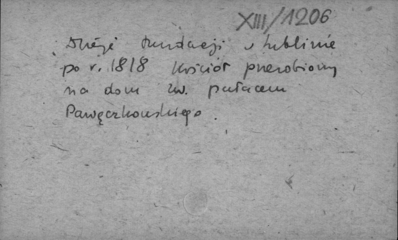 XIII/1206
Dzieje fundacji w Lublinie
po r. 1818 Kościół przerobiony
na dom zw. pałacem
Pawęczkowskiego.